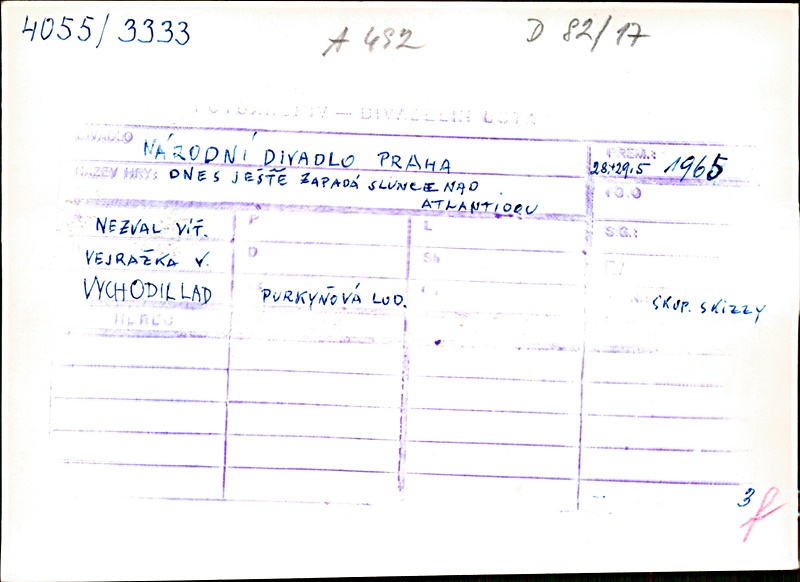 4055/3333
A 492
D 82/17
DIVADLO NÁRODNÍ DIVADLO PRAHA
PREM.: 28.+29.5 1965
NÁZEV HRY: DNES JEŠTĚ ZAPADÁ SLUNCE NAD
ATLANTIDOU
NEZVAL VÍT.
P
L
S.G.:
VEJRAŽKA V.
D
Sh
VYCHODIL LAD
PURKYŇOVÁ LUD.
SKUP. SKIZZY
HERCI
3